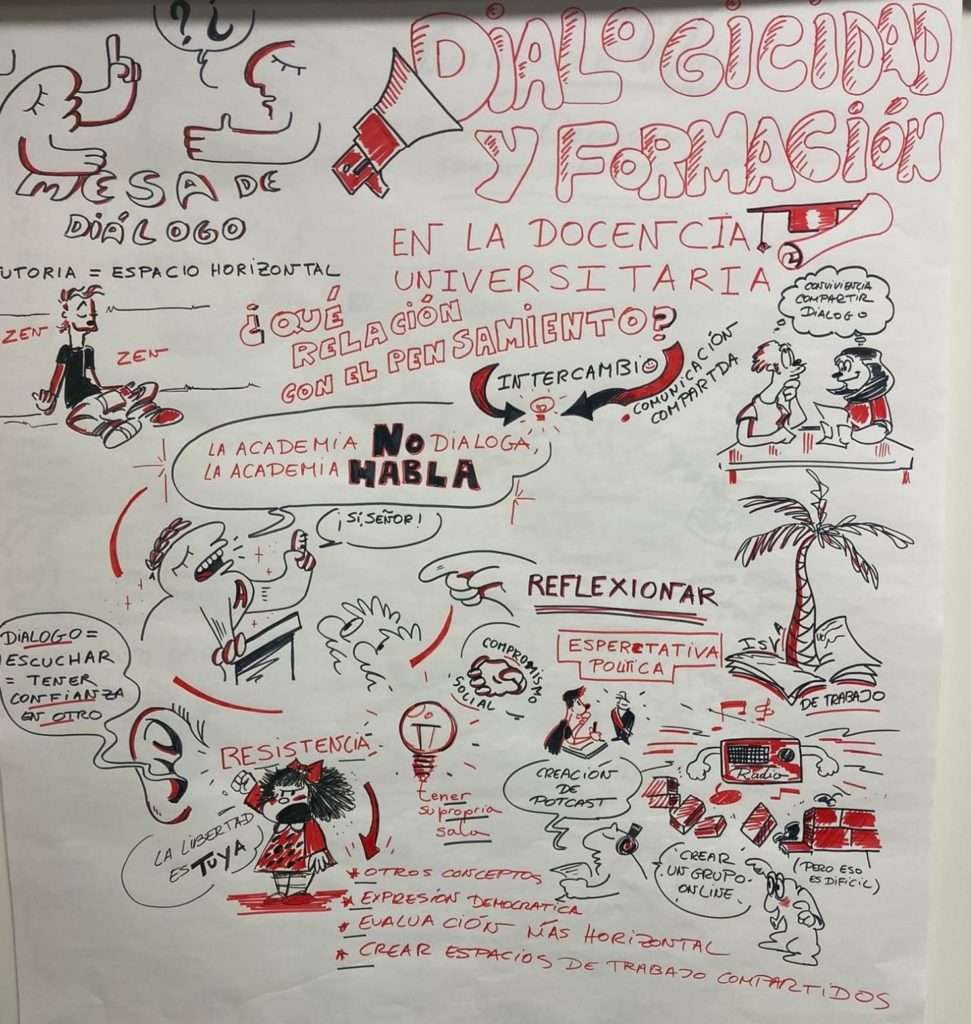 ? ¿
DIALOGICIDAD
Y FORMACIÓN
MESA DE
DIÁLOGO
EN LA DOCENCIA
UNIVERSITARIA
UTORIA = ESPACIO HORIZONTAL
ZEN
ZEN
¿QUÉ
RELACIÓN
CON EL PENSAMIENTO?
INTERCAMBIO
• COMUNICACIÓN
COMPARTIDA
CONVIVIENCIA
COMPARTIR
DIALOGO
LA ACADEMIA NO DIALOGA,
LA ACADEMIA HABLA
¡SI, SEÑOR!
A
REFLEXIONAR
DIALOGO =
ESCUCHAR
= TENER
CONFIANZA
EN OTRO
COMPROMISMO
SOCIAL
ESPERETATIVA
POLÍTICA
ISVA
DE TRABAJO
RESISTENCIA
LA LIBERTAD
ES TUYA
tener
su propria
sala
CREACIÓN
DE
POTCAST
Radio
CREAR
UN GRUPO
ONLINE
(PERO ESO
ES DIFÍCIL)
* OTROS CONCEPTOS
* EXPRESIÓN DEMOCRATICA
* EVALUACIÓN MÁS HORIZONTAL
* CREAR ESPACIOS DE TRABAJO COMPARTIDOS